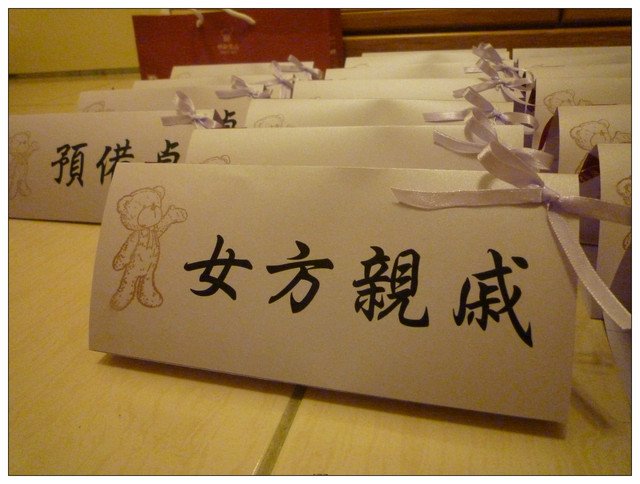 女方親戚
預備桌